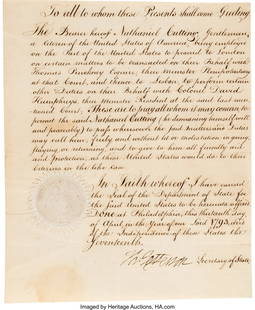 To all to whom these Presents shall come Greeting
The Bearer hereof Nathaniel Cutting, Gentleman,
a Citizen of the United States of America, being employed
on the Part of the United States to proceed to London
on certain matters to be transacted on their Behalf with
Thomas Pinckney Esquire, their Minister Plenipotentiary
at that Court, and thence to Lisbon to perform certain
other Duties on their Behalf with Colonel David
Humphreys, their Minister Resident at the said last men-
tioned Court, These are to pray all whom it may concern to
permit the said Nathaniel Cutting (he demeaning himself well
and peaceably) to pass wheresoever the said Duties
may call him, freely and without let or molestation in going
staying or returning, and to give to him all friendly aid
and Protection, as these United States would do to their
Citizens in the like case.
In Faith whereof I have caused
the Seal of the Department of State for
the said United States to be hereunto affixed
Done at Philadelphia, this thirteenth day
of April in the Year of our Lord 1793, and
of the Independence of these States the
Seventeenth.
Th: Jefferson Secretary of State
Imaged by Heritage Auctions, HA.com